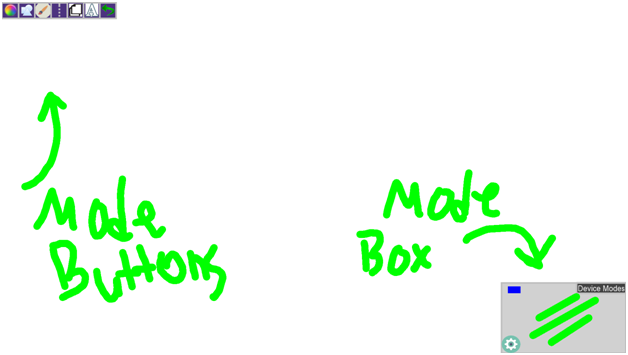 A
Mode
Buttons
Mode
Box
Device Modes